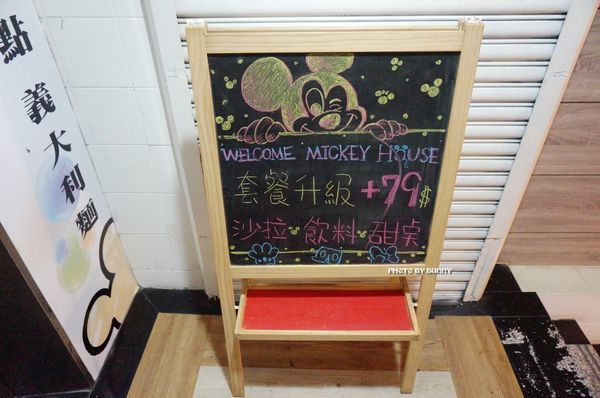 點義大利麵
WELCOME MICKEY HOUSE
套餐升級 +79$
沙拉·飲料·甜点
PHOTO BY BUNNY